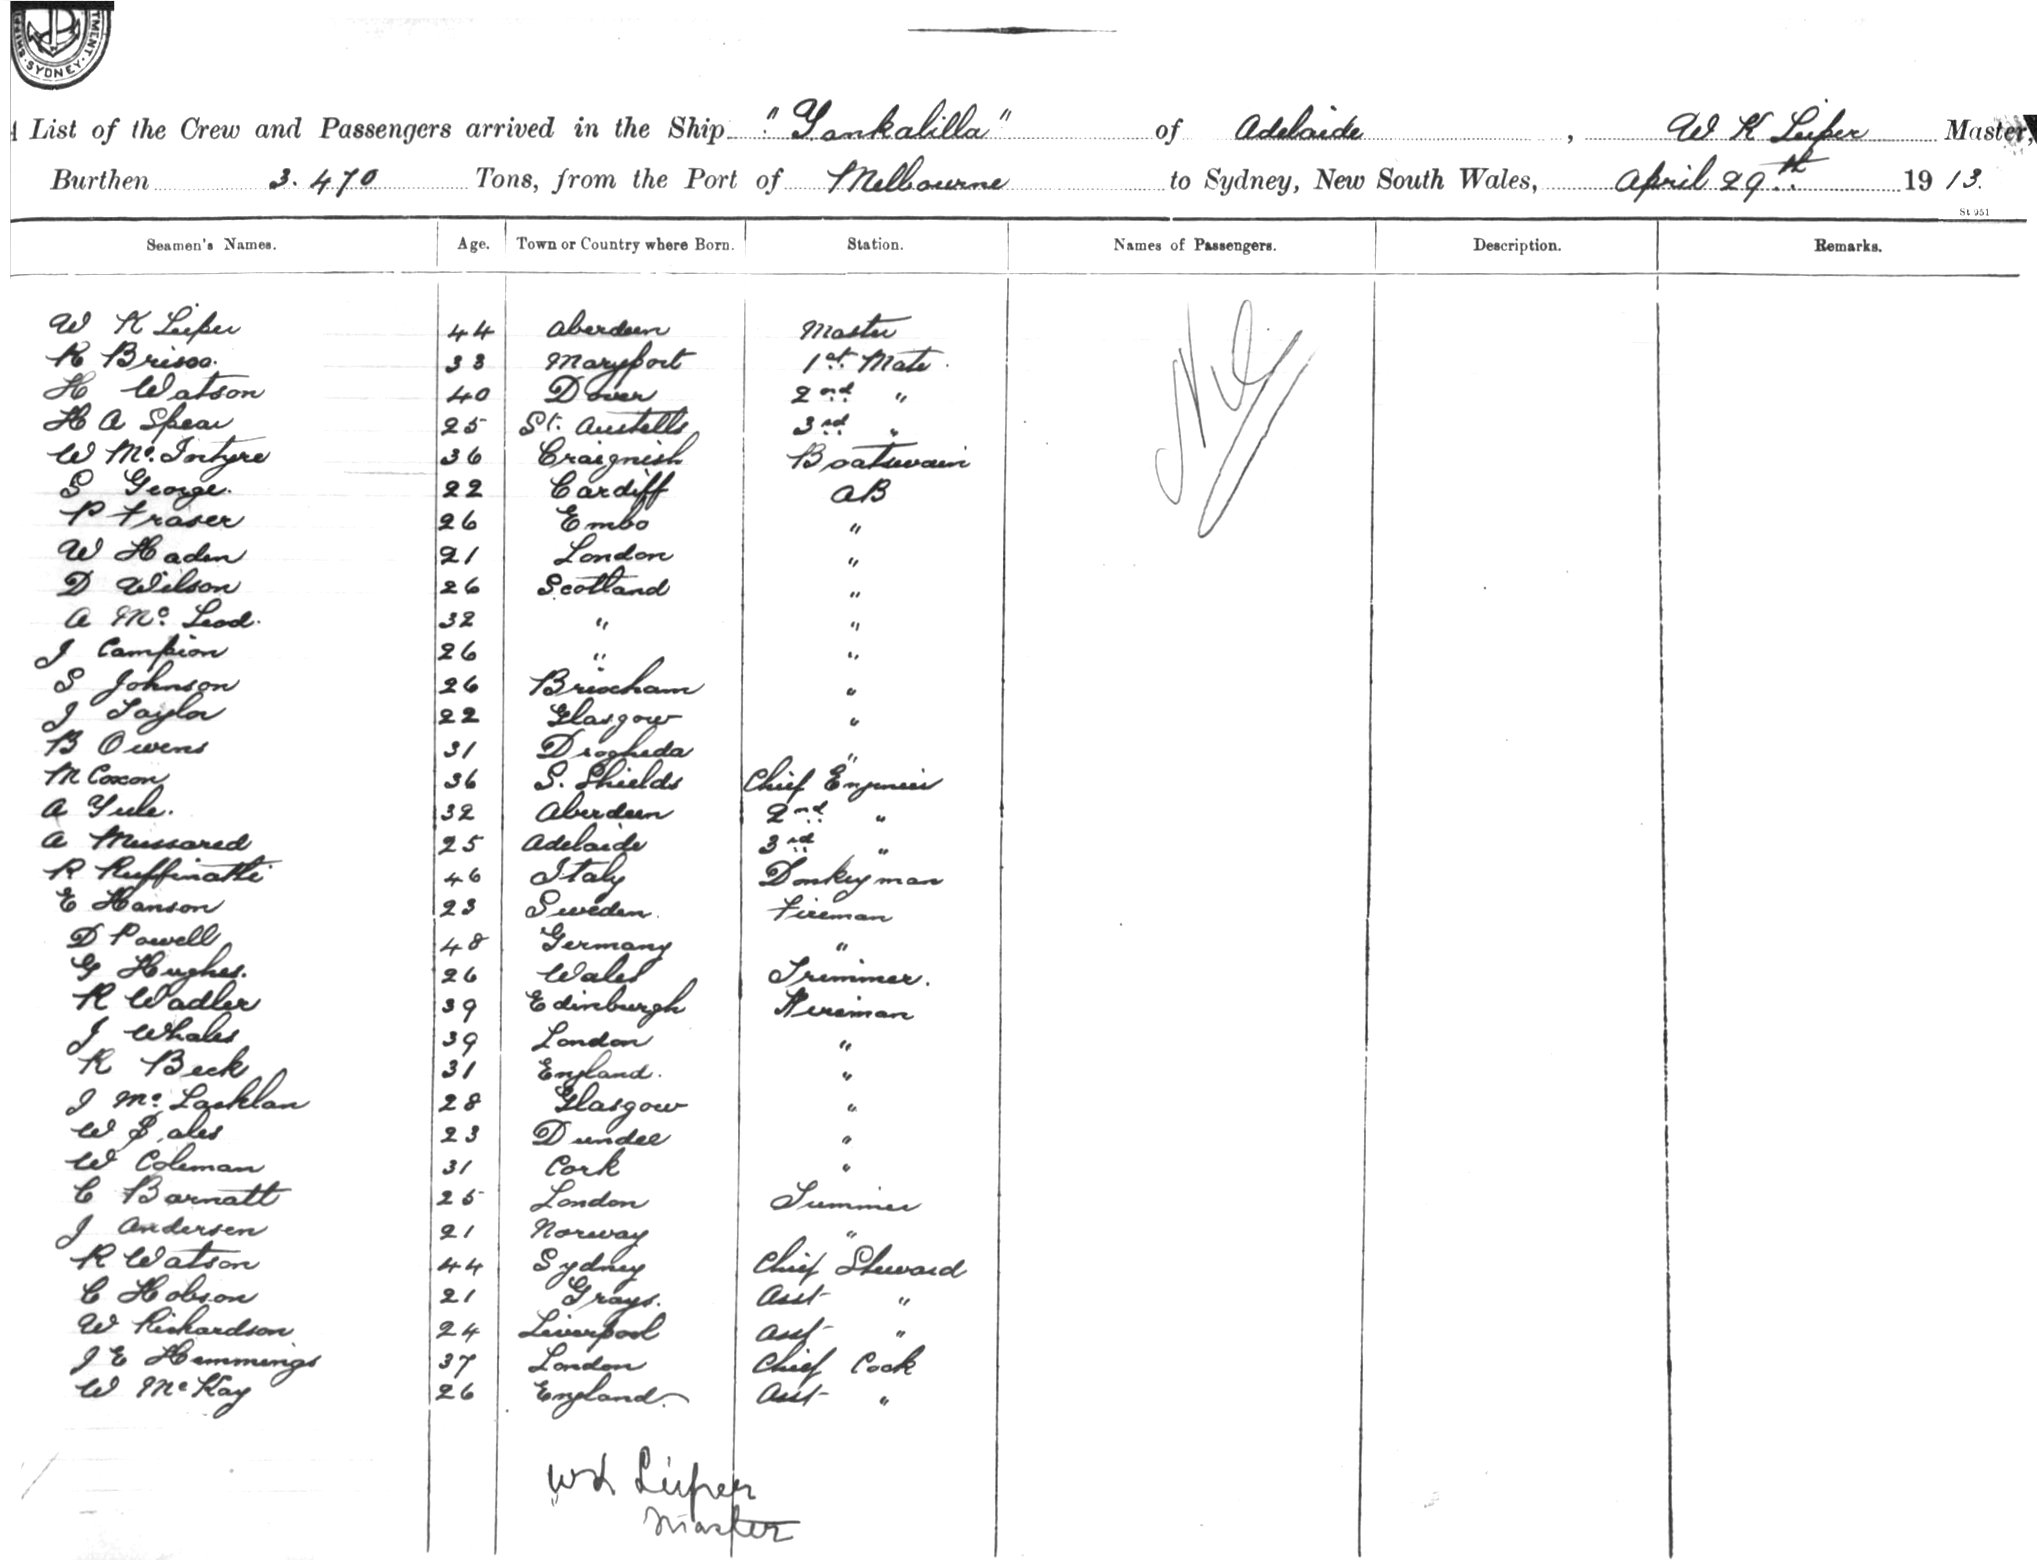 SYDNEY
List of the Crew and Passengers arrived in the Ship "Yankalilla" of Adelaide, W K Leiper Master,
Burthen 3.470 Tons, from the Port of Melbourne to Sydney, New South Wales, April 29th 1913.
St 951
Seamen's Names. Age. Town or Country where Born. Station. Names of Passengers. Description. Remarks.
W K Leiper 44 Aberdeen Master
R Brisco. 33 Maryport 1st Mate.
H Watson 40 Dover 2nd "
H A Spear 25 St. Austells 3rd "
W Mc. Intyre 36 Craignish Boatswain
S George. 22 Cardiff AB
P Fraser 26 Embo "
W Haden 21 London "
D Wilson 26 Scotland "
A Mc. Leod. 32 " "
J Campion 26 " "
S Johnson 26 Brixham "
J Taylor 22 Glasgow "
B Owens 31 Drogheda "
M Coxon 36 S. Shields Chief Engineer
A Yule. 32 Aberdeen 2nd "
A Mussared 25 Adelaide 3rd "
R Ruffinatti 46 Italy Donkeyman
E Hanson 23 Sweden. Fireman
D Powell 48 Germany "
G Hughes. 26 Wales Trimmer.
R Wadler 39 Edinburgh Fireman
J Whales 39 London "
R Beck 31 England. "
J Mc. Lachlan 28 Glasgow "
W 23 Dundee "
W Coleman 31 Cork "
C Barnatt 25 London Trimmer
J Andersen 21 Norway "
R Watson 44 Sydney Chief Steward
C Hobson 21 Grays. Asst "
W Richardson 24 Liverpool Asst "
J E Hemmings 37 London Chief Cook
W McKay 26 England. Asst "
Nil
WK Leiper
Master